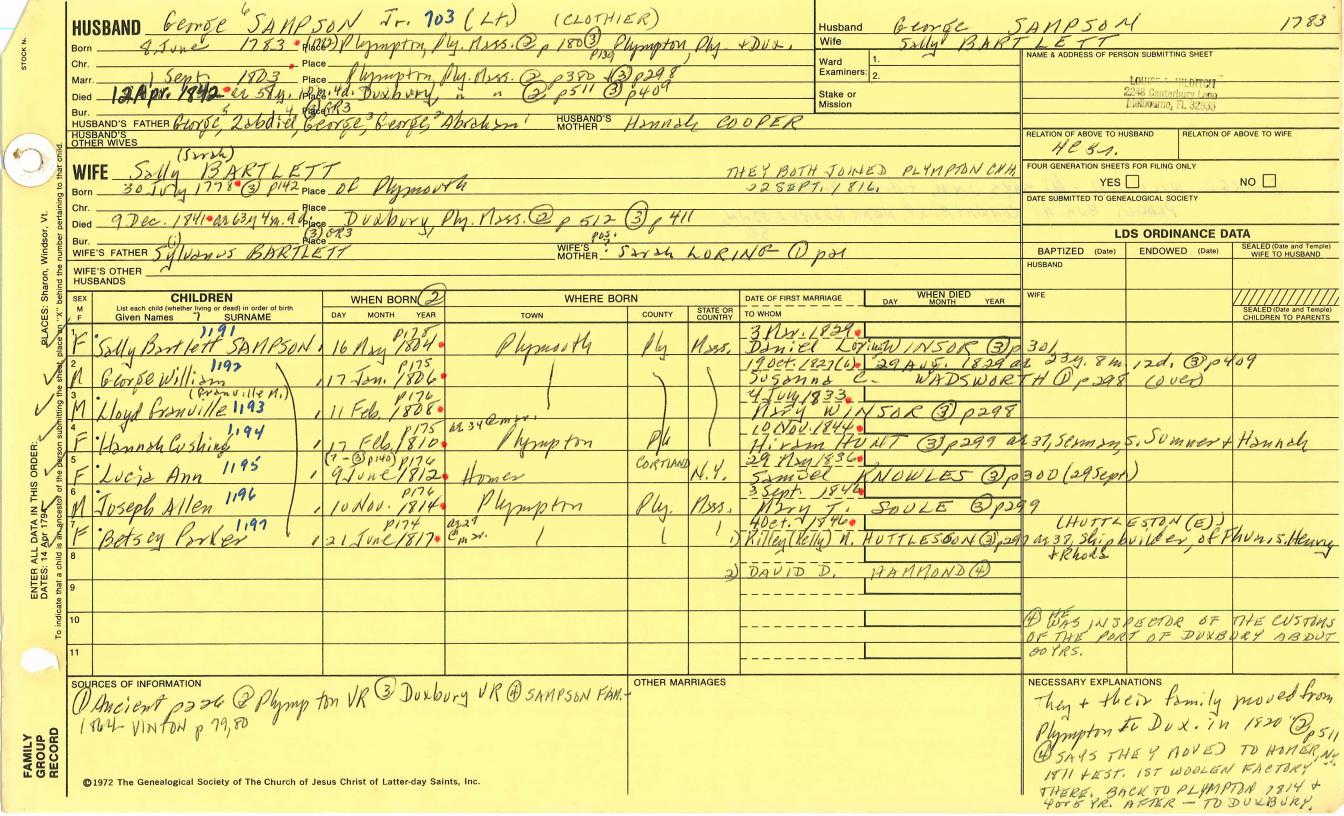 HUSBAND George 6 SAMPSON Jr. 703 (Lt.) (CLOTHIER)
Born 8 June 1783 Place Plympton, Ply. Mass. ② p 180 ③ Plympton, Ply. + Dux.
p139
Chr. Place
Marr. 1 Sept. 1803 Place Plympton, Ply. Mass. ② p380 + ③ p298
Died 12 Apr. 1842 Place Duxbury, " " ② p511 ③ p409
Bur. Place (3) GR3
HUSBAND'S FATHER George, Zabdiel, George, George, Abraham HUSBAND'S MOTHER Hannah COOPER
HUSBAND'S OTHER WIVES
Husband George SAMPSON 1783
Wife Sally BARTLETT
Ward Examiners: 1.
2.
Stake or Mission
NAME & ADDRESS OF PERSON SUBMITTING SHEET
2248 Canterbury Lane
Melbourne, FL
RELATION OF ABOVE TO HUSBAND RELATION OF ABOVE TO WIFE
FOUR GENERATION SHEETS FOR FILING ONLY
YES NO
DATE SUBMITTED TO GENEALOGICAL SOCIETY
(Sarah)
WIFE Sally BARTLETT
THEY BOTH JOINED PLYMPTON CHH.
22 SEPT. 1816.
Born 30 July 1778 ③ p142 Place of Plymouth
Chr. Place
Died 9 Dec. 1841 ae 63y 4m 9d. Place Duxbury, Ply. Mass. ② p 512 ③ p411
Bur. Place (3) GR3
WIFE'S FATHER Sylvanus BARTLETT WIFE'S MOTHER pos. ? Sarah LORING ①
WIFE'S OTHER HUSBANDS
LDS ORDINANCE DATA
BAPTIZED (Date) ENDOWED (Date) SEALED (Date and Temple) WIFE TO HUSBAND
HUSBAND
WIFE
SEALED (Date and Temple) CHILDREN TO PARENTS
SEX M F CHILDREN List each child (whether living or dead) in order of birth. Given Names 7 SURNAME
WHEN BORN ② DAY MONTH YEAR
WHERE BORN TOWN COUNTY STATE OR COUNTRY
DATE OF FIRST MARRIAGE TO WHOM
WHEN DIED DAY MONTH YEAR
1 F Sally Bartlett SAMPSON 1191 16 May 1804 p175 Plymouth Ply Mass. 3 Mar. 1829
Daniel Loring WINSOR ③ p301
2 M George William 1192 17 Jan. 1806 p175 19 Oct. 1827 29 AUG. 1829 ae 23y. 8m. 12d. ③ p409
Susanna C. WADSWORTH ① p298 (over)
3 M Lloyd Granville 1193 (Granville M.) 11 Feb. 1808 4 July 1833
Mary WINSOR ③ p298
4 F Hannah Cushing 1194 17 Feb. 1810 p175 ae 34 @ mar. Plympton Ply 10 Nov. 1844
Hiram HUNT ③ p299 ae 37, Seaman, s. Sumner + Hannah
5 F Lucia Ann 1195 (7-③ p140) 9 June 1812 p176 Homer CORTLAND N.Y. 29 May 1836
Samuel KNOWLES ③ p300 (29 Sept)
6 M Joseph Allen 1196 10 Nov. 1814 p176 Plympton Ply. Mass. 3 Sept. 1846
Mary T. SOULE ③ p299
7 F Betsey Parker 1197 21 June 1817 p174 ae 29 @ mar. 4 Oct. 1846 (HUTTLESTON (E))
1) Killey (Kelly) N. HUTTLESTON ③ p297 ae 37, Shipbuilder, of Fhvn. s. Henry + Rhoda
8 2) DAVID D. HAMMOND ④
9
10
11
④ HE WAS INSPECTOR OF THE CUSTOMS
OF THE PORT OF DUXBURY ABOUT
20 YRS.
SOURCES OF INFORMATION
① Ancient p226 ② Plympton VR ③ Duxbury VR ④ SAMPSON FAM. -
1864 VINTON p 79,80
OTHER MARRIAGES
NECESSARY EXPLANATIONS
They + their family moved from
Plympton to Dux. in 1820 ② p511
④ SAYS THEY MOVED TO HOMER, N.Y.
1811 + EST. 1ST WOOLEN FACTORY
THERE. BACK TO PLYMPTON 1814 +
4 OR 5 YR. AFTER — TO DUXBURY.
©1972 The Genealogical Society of The Church of Jesus Christ of Latter-day Saints, Inc.
FAMILY GROUP RECORD
STOCK N.
ENTER ALL DATA IN THIS ORDER:
DATES: 14 Apr 1794 PLACES: Sharon, Windsor, Vt.
To indicate that a child is an ancestor of the person submitting the sheet, place an "X" behind the number pertaining to that child.